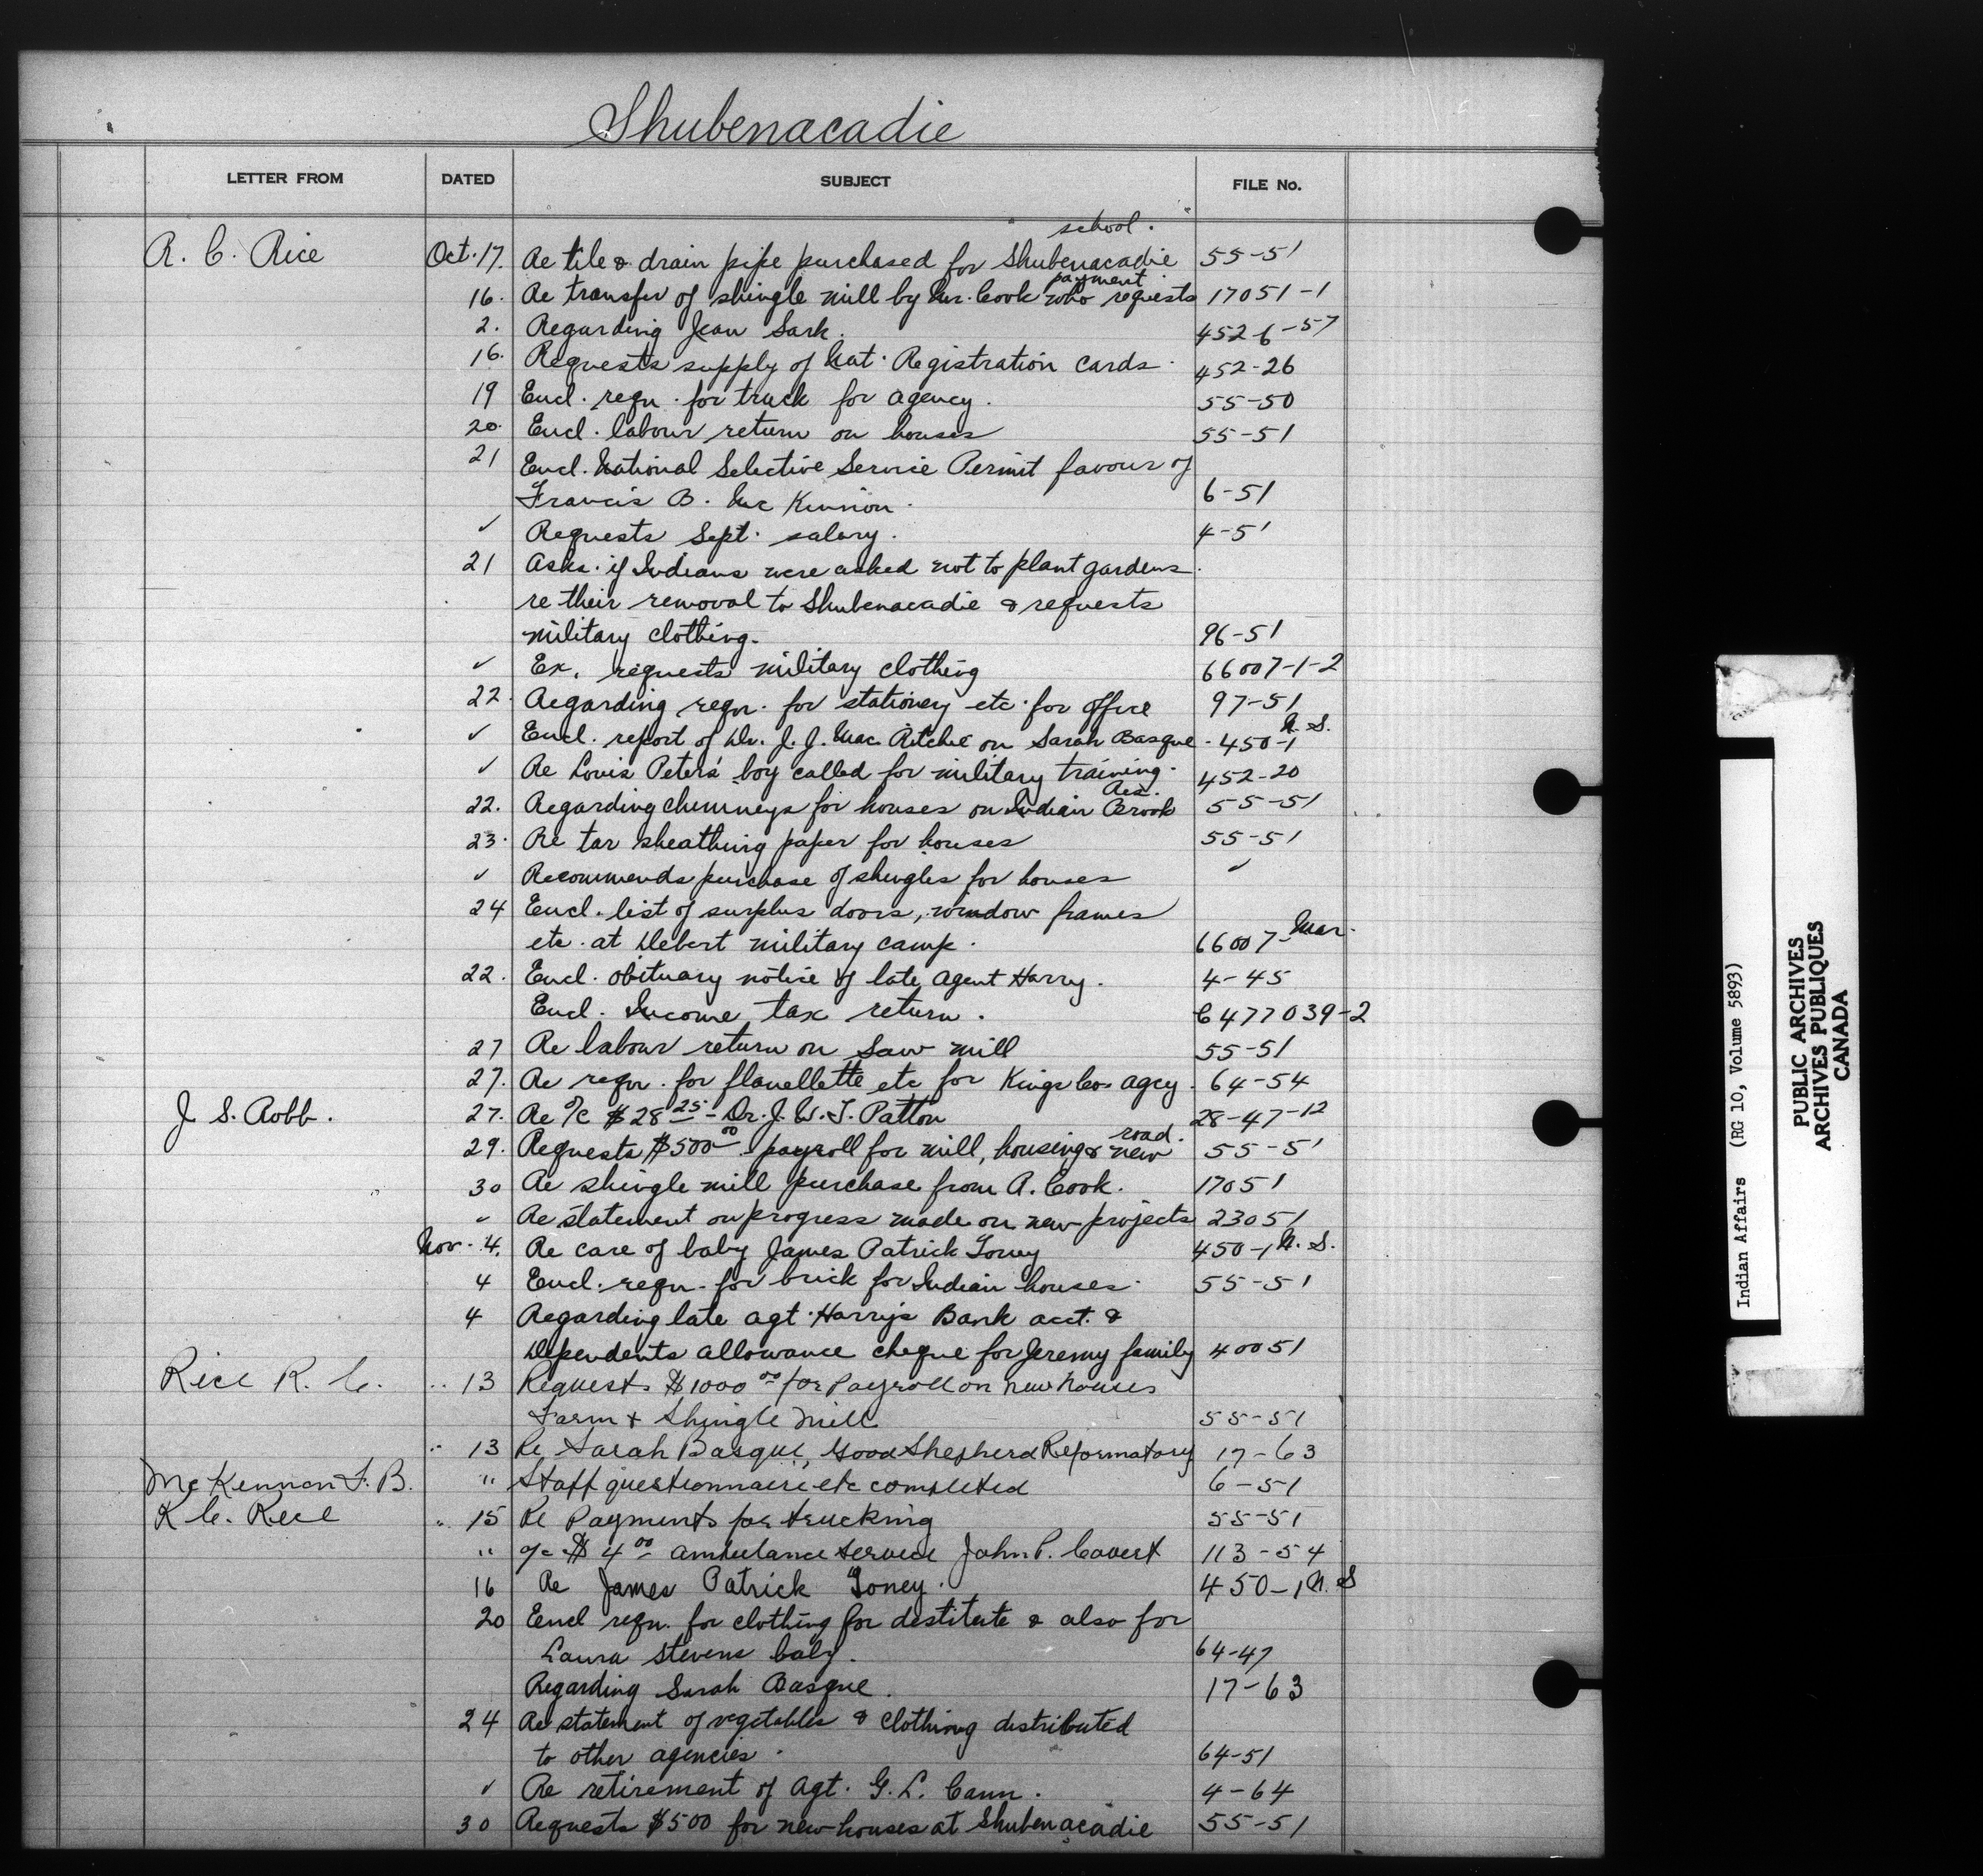 Shubenacadie
LETTER FROM DATED SUBJECT FILE No.
school.
R. C. Rice Oct. 17. Re tile & drain pipe purchased for Shubenacadie 55-51
payment
16. Re transfer of shingle mill by Mr. Cook who requests 17051-1
2. Regarding Jean Sark. 452-6-57
16. Requests supply of Nat. Registration cards. 452-26
19 Encl. reqn. for truck for agency. 55-50
20. Encl. labour return on houses 55-51
21 Encl. National Selective Service Permit favour of
Francis B. Mc Kinnon. 6-51
✓ Requests Sept. salary. 4-51
21 Asks. if Indians were asked not to plant gardens.
re their removal to Shubenacadie & requests
military clothing. 96-51
✓ Ex. requests military clothing 66007-1-2
22. Regarding reqn. for stationery etc. for office 97-51
✓ Encl. report of Dr. J. J. Mac Ritchie on Sarah Basque. 450-1 N. S.
✓ Re Louis Peters' boy called for military training. 452-20
Res.
22. Regarding chimneys for houses on Indian Brook 55-51
23. Re tar sheathing paper for houses 55-51
✓ Recommends purchase of shingles for houses ✓
24 Encl. list of surplus doors, window frames
etc. at Debert military camp. 66007-Mar.
22. Encl. obituary notice of late agent Harry. 4-45
Encl. Income tax return. C477039-2
27 Re labour return on saw mill 55-51
27. Re reqn. for flanellette etc for Kings Co. agcy. 64-54
J. S. Robb. 27. Re a/c $28 25 - Dr. J. W. T. Patton 28-47-12
road.
29. Requests $500 00 payroll for mill, housing & new 55-51
30 Re shingle mill purchase from A. Cook. 17051
✓ Re statement on progress made on new projects 23051
Nov. 4. Re care of baby James Patrick Toney 450-1 N. S.
4 Encl. reqn. for brick for Indian houses. 55-51
4 Regarding late agt. Harry's Bank acct. &
Dependents allowance cheque for Jeremy family 40051
Rice R. C. .. 13 Requests $1000 00 for Payroll on new houses
Farm + Shingle Mill 55-51
.. 13 Re Sarah Basque, Good Shepherd Reformatory 17-63
McKennon F. B. " Staff questionnaire etc completed 6-51
R C. Rice .. 15 Re Payments for trucking 55-51
" a/c $ 4 00 ambulance service John P. Covert 113-54
16 Re James Patrick Toney. 450-1 N. S
20 Encl reqn. for clothing for destitute & also for
Laura Stevens baby. 64-47
Regarding Sarah Basque. 17-63
24 Re statement of vegetables & clothing distributed
to other agencies. 64-51
✓ Re retirement of Agt. G. L. Cann. 4-64
30 Requests $500 for new houses at Shubenacadie 55-51
Indian Affairs (RG 10, Volume 5893)
PUBLIC ARCHIVES
ARCHIVES PUBLIQUES
CANADA